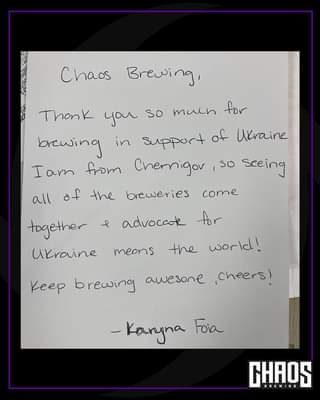 Chaos Brewing,
Thank you so much for
brewing in support of Ukraine
I am from Chernigov, so seeing
all of the breweries come
together & advocate for
Ukraine means the world!
Keep brewing awesone, cheers!
- Karyna Foia
CHAOS
BREWING